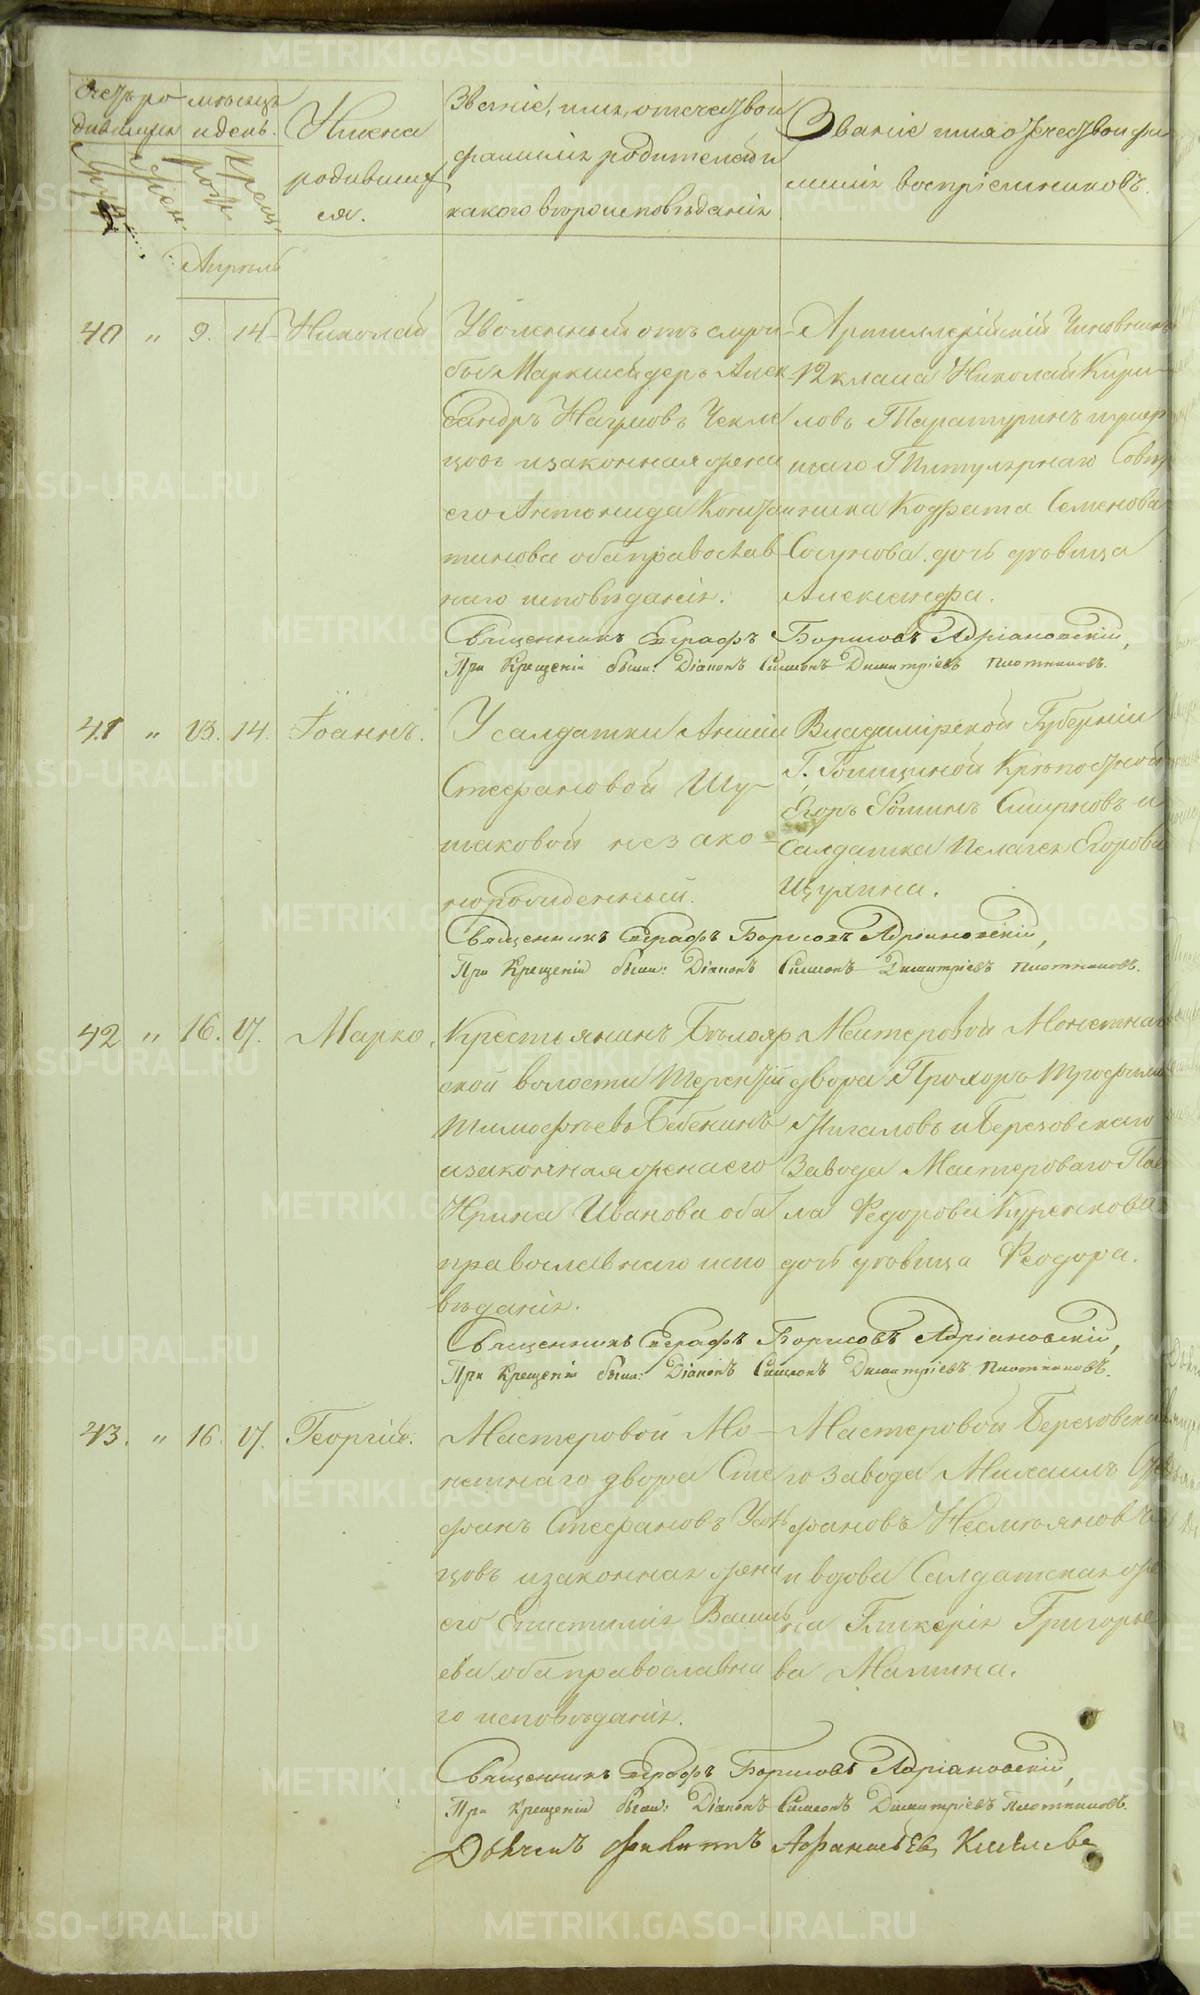 Счетъ ро- мѣсяцъ
дившихся и день.
Муж. Женс. рожд. Крещ.
Имена
родивших
ся.
Званіе, имя, отечество и
фамилія родителей и
какого вѣроисповѣданія
Званіе имя отечество и фа
милія воспріемниковъ.
Апрѣль
40 " 9. 14 Николай
Уволенный отъ служ-
бы Маркшейдеръ Алек
сандръ Наумовъ
и законная жена
его Антонида Констан
тинова оба православ
наго исповѣданія.
Артиллерійскій Чиновникъ
12 класса Николай Кири-
ловъ и умер
шаго Титулярнаго Совѣт
ника Кодрата Семенова
дочь дѣвица
Александра.
Священникъ Евграфъ Борисовъ Адріановскій,
При Крещеніи были: Діаконъ Симеонъ Димитріевъ Плотниковъ.
41 " 13. 14. Іоаннъ.
У салдатки Анисіи
Стефановой Шу-
маковой незако-
норожденный.
Владимірской Губерніи
Г. Голициной Крѣпостной
Егоръ Фоминъ Смирновъ и
Салдатка Пелагея Егорова
Щукина.
Священникъ Евграфъ Борисовъ Адріановскій,
При Крещеніи были: Діаконъ Симеонъ Димитріевъ Плотниковъ.
42 " 16. 17. Марко.
Крестьянинъ Бѣлояр
ской волости Терентій
Тимофѣевъ Бебенинъ
и законная жена его
Ирина Иванова оба
православнаго испо
вѣданія.
Мастеровой Монетнаго
двора Прохоръ Трофимовъ
и Березовскаго
Завода Мастероваго Пав
ла Федорова Куренкова
дочь дѣвица Феодора.
Священникъ Евграфъ Борисовъ Адріановскій,
При Крещеніи были: Діаконъ Симеонъ Димитріевъ Плотниковъ.
43. " 16. 17. Георгій.
Мастеровой Мо-
нетнаго двора Сте
фанъ Стефановъ
и законная жена
его Епистимія Василь
ева оба православна
го исповѣданія.
Мастеровой Березовска
го Завода Михаилъ Сте
фановъ Несмѣяновъ
и вдова Салдатская же
на Гликерія Григорье
ва Мапина.
Священникъ Евграфъ Борисовъ Адріановскій,
При Крещеніи были: Діаконъ Симеонъ Димитріевъ Плотниковъ.
Дьячекъ Филиппъ Афанасьевъ Киселевъ
METRIKI.GASO-URAL.RU